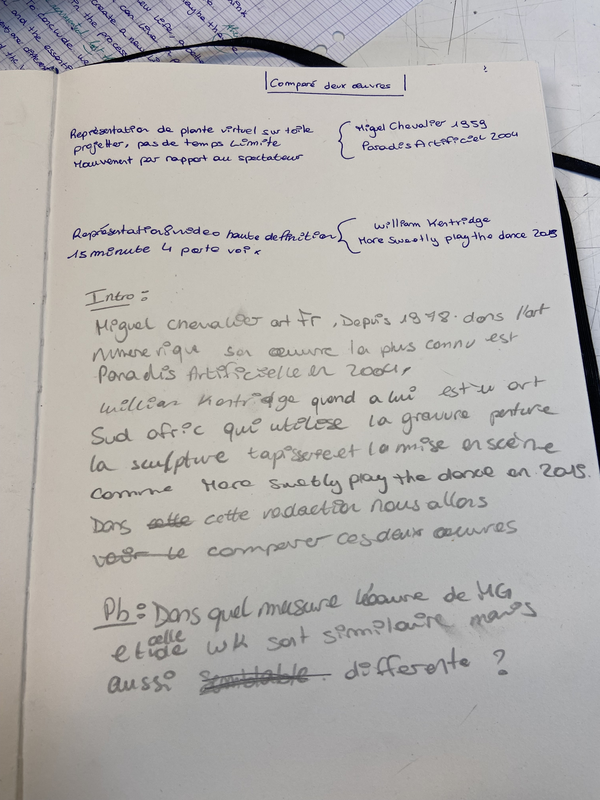 Comparé deux œuvres
Représentation de plante virtuel sur toile
projetter, pas de temps Limite
Mouvement par rapport au spectateur
Migel Chevalier 1959
Paradis Artificiel 2004
Représentation video haute definition
15 minute 4 porte voix
William Kentridge
More Sweetly play the dance 2015
Intro :
Miguel chevalier art Fr, Depuis 1978. dans l'art
numerique son œuvre la plus connu est
Paradis Artificielle en 2004,
willian Kentridge quand a lui est un art
Sud afric qui utilise la gravure penture
la sculpture tapisserie et la mise en scène
comme More swetly play the dance en 2015.
Dans cette cette redaction nous allons
voir le comparer ces deux œuvres
Pb : Dans quel mesure l'œuvre de MG
et celle de WK sont simmilaire mais
aussi semblable differente ?